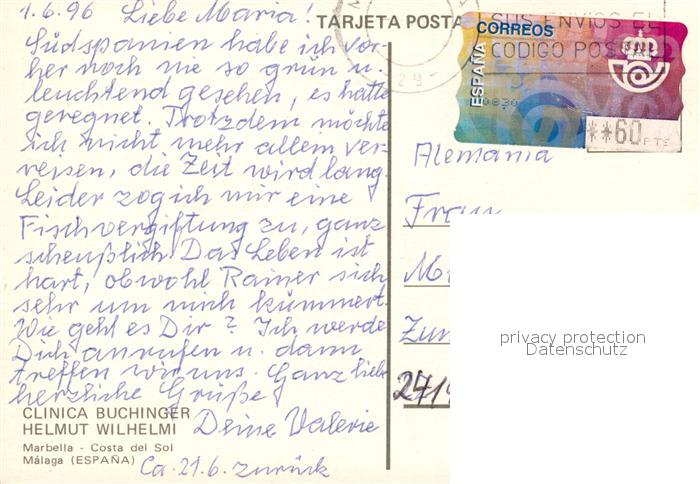 1.6.96 Liebe Maria!
Südspanien habe ich vor-
her noch nie so grün u.
leuchtend gesehen, es hatte
geregnet. Trotzdem möchte
ich nicht mehr allein ver-
reisen, die Zeit wird lang.
Leider zog ich mir eine
Fischvergiftung zu, ganz
scheußlich. Das Leben ist
hart, obwohl Rainer sich
sehr um mich kümmert.
Wie geht es Dir? Ich werde
Dich anrufen u. dann
treffen wir uns. Ganz liebe
herzliche Grüße
Deine Valerie
Ca. 21.6. zurück
CLINICA BUCHINGER
HELMUT WILHELMI
Marbella - Costa del Sol
Málaga (ESPAÑA)
TARJETA POSTA
SUS ENVIOS EL
CODIGO POSTA
29-
CORREOS
ESPAÑA
**60 PTS
Alemania
Frau
M
Zu
241
privacy protection
Datenschutz